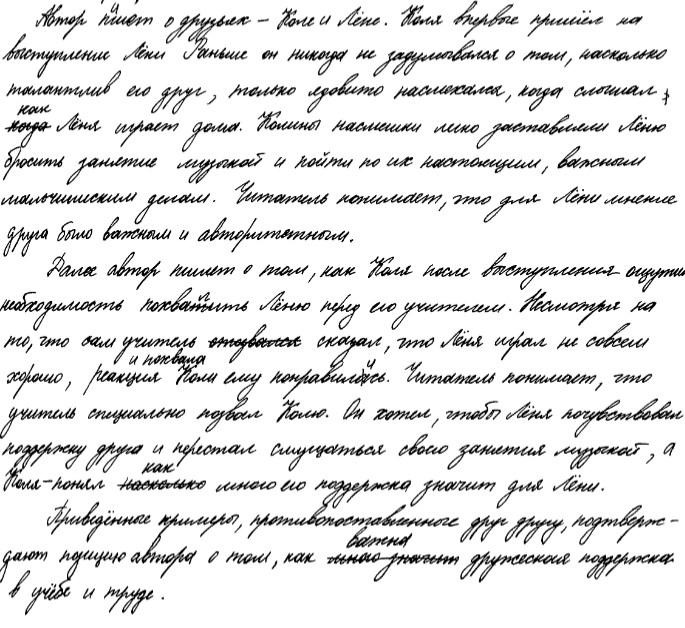 Автор пишет о друзьях – Коле и Лёне. Коля впервые пришёл на
выступление Лёни Раньше он никогда не задумывался о том, насколько
талантлив его друг, только ядовито насмехался, когда слышал,
как
когда Лёня играет дома. Колины насмешки легко заставляли Лёню
бросить занятие музыкой и пойти по их настоящим, важным
мальчишеским делам. Читатель понимает, что для Лёни мнение
друга было важным и авторитетным.
Далее автор пишет о том, как Коля после выступления ощутил
необходимость похвалить Лёню перед его учителем. Несмотря на
то, что сам учитель отзывался сказал, что Лёня играл не совсем
и похвала
хорошо, реакция Коли ему понравилась. Читатель понимает, что
учитель специально позвал Колю. Он хотел, чтобы Лёня почувствовал
поддержку друга и перестал смущаться своего занятия музыкой, а
как
Коля – понял насколько много его поддержка значит для Лёни.
Приведённые примеры, противопоставленные друг другу, подтверж-
важна
дают позицию автора о том, как много значит дружеская поддержка
в учёбе и труде.